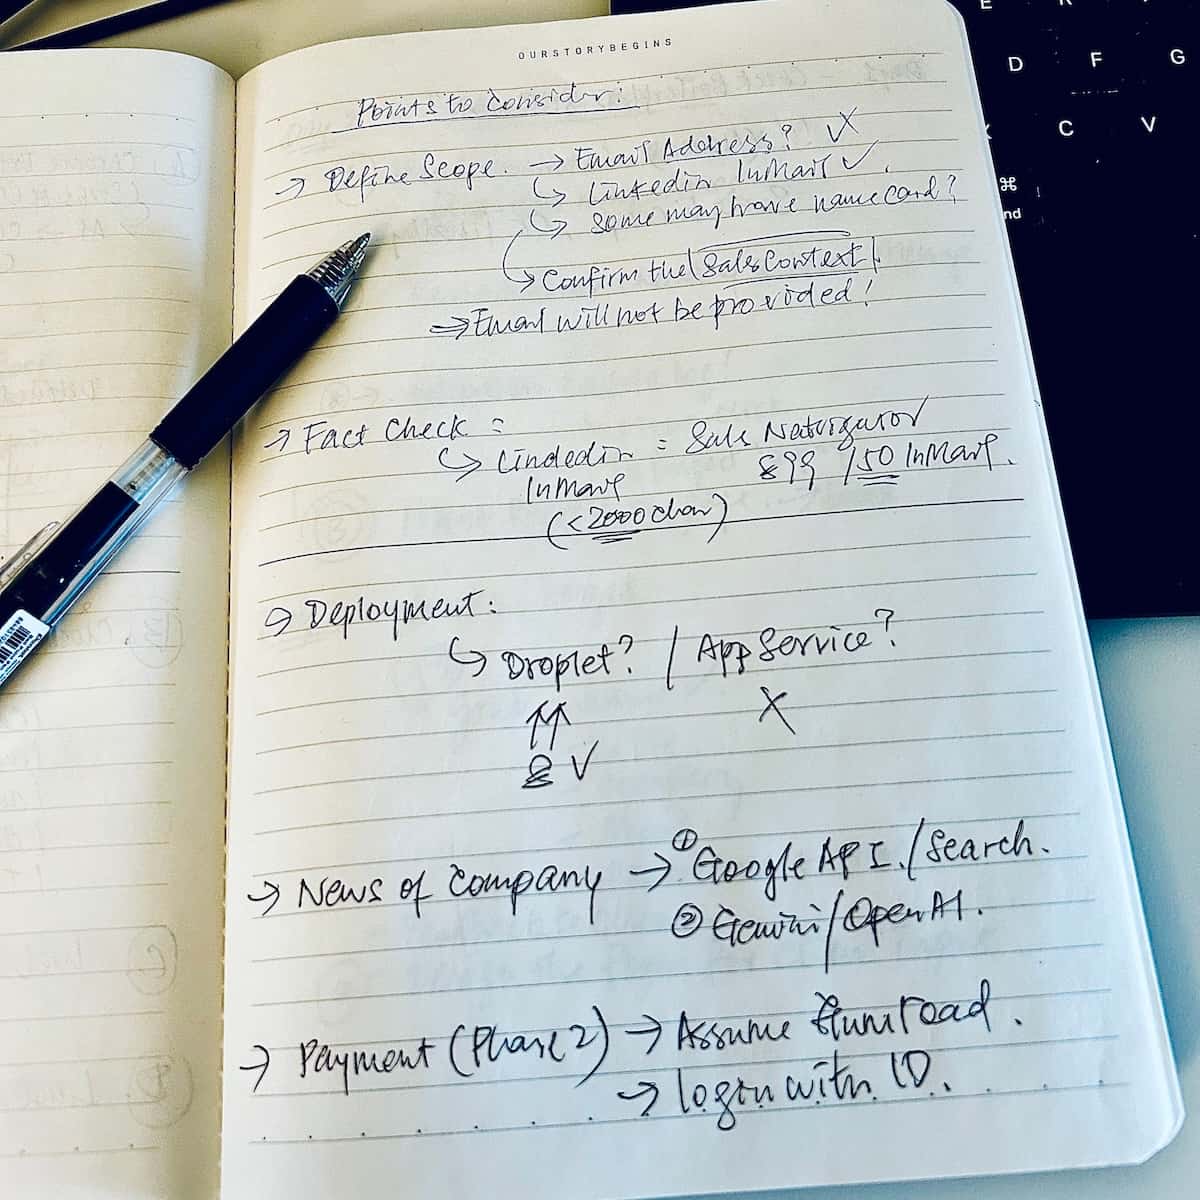 OURSTORYBEGINS
Points to Consider:
→ Define Scope. → Email Address? √X
↳ Linkedin InMail ✓.
↳ Some may have name card?
↳ Confirm the Sales Context!
⇒ Email will not be provided!
→ Fact Check =
↳ Lindedin = Sale Navigator
InMail $99 /50 InMail.
(<2000 char)
→ Deployment:
↳ Droplet? / App Service?
↑↑ X
✓
→ News of Company → ① Google API./Search.
② Gemini/OpenAI.
→ Payment (Phase 2) → Assume Gumroad.
→ login with ID.
E
D F G
C V
⌘